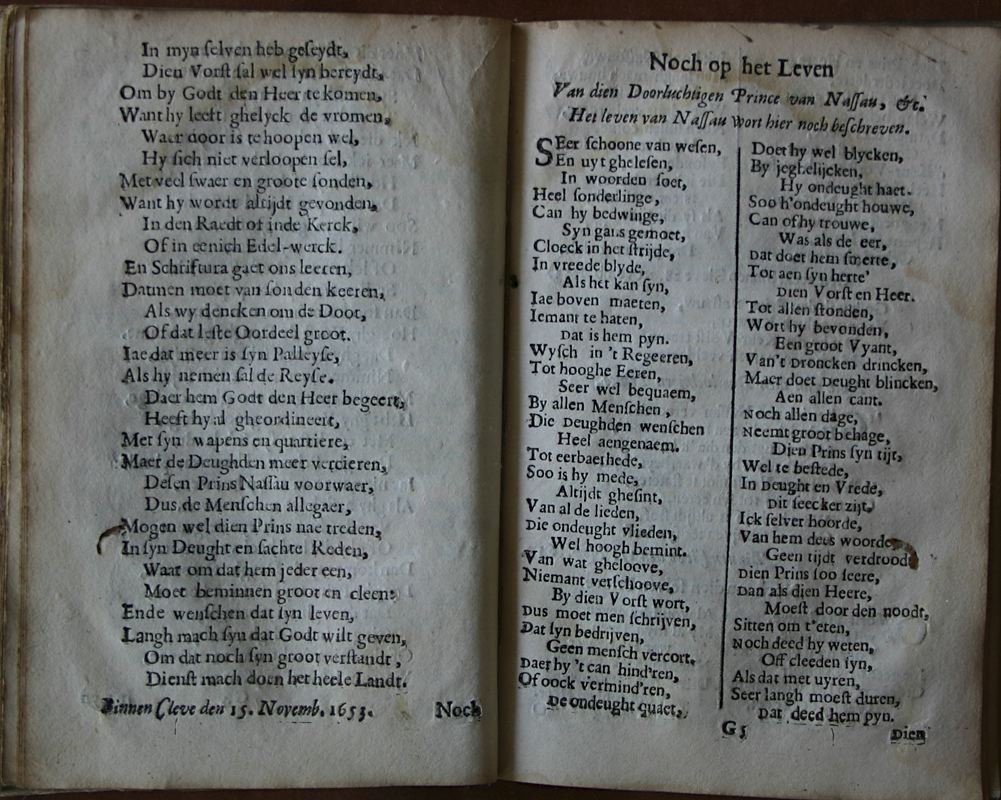 In myn ſelven heb geſeydt,
Dien Vorſt ſal wel ſyn bereydt,
Om by Godt den Heer te komen,
Want hy leeft ghelyck de vromen,
Waer door is te hoopen wel,
Hy ſich niet verloopen ſel,
Met veel ſwaer en groote ſonden,
Want hy wordt altijdt gevonden,
In den Raedt of inde Kerck,
Of in eenich Edel-werck.
En Schriftura gaet ons leeren,
Datmen moet van ſonden keeren,
Als wy dencken om de Doot,
Of dat leſte Oordeel groot.
Iae dat meer is ſyn Palleyſe,
Als hy nemen ſal de Reyſe.
Daer hem Godt den Heer begeert,
Heeft hy al gheordineert,
Met ſyn wapens en quartiere,
Maer de Deughden meer vercieren,
Deſen Prins Naſſau voorwaer,
Dus de Menſchen allegaer,
Mogen wel dien Prins nae treden,
In ſyn Deught en ſachte Reden,
Waar om dat hem jeder een,
Moet beminnen groot en cleen:
Ende wenſchen dat ſyn leven,
Langh mach ſyn dat Godt wilt geven,
Om dat noch ſyn groot verſtandt,
Dienſt mach doen het heele Landt.
Binnen Cleve den 15. Novemb. 1653.
Noch
Noch op het Leven
Van dien Doorluchtigen Prince van Naſſau, &c.
Het leven van Naſſau wort hier noch beſchreven.
SEer ſchoone van weſen,
En uyt gheleſen,
In woorden ſoet,
Heel ſonderlinge,
Can hy bedwinge,
Syn gans gemoet,
Cloeck in het ſtrijde,
In vreede blyde,
Als het kan ſyn,
Iae boven maeten,
Iemant te haten,
Dat is hem pyn.
Wyſch in 't Regeeren,
Tot hooghe Eeren,
Seer wel bequaem,
By allen Menſchen,
Die Deughden wenſchen
Heel aengenaem.
Tot eerbaerhede,
Soo is hy mede,
Altijdt gheſint,
Van al de lieden,
Die ondeught vlieden,
Wel hoogh bemint.
Van wat gheloove,
Niemant verſchoove,
By dien Vorſt wort,
Dus moet men ſchrijven,
Dat ſyn bedrijven,
Geen menſch vercort.
Daer hy 't can hind'ren,
Of oock vermind'ren,
De ondeught quaet,
Doet hy wel blycken,
By jeghelijcken,
Hy ondeught haet.
Soo h'ondeught houwe,
Can of hy trouwe,
Was als de eer,
Dat doet hem ſmerte,
Tot aen ſyn herte'
Dien Vorſt en Heer.
Tot allen ſtonden,
Wort hy bevonden,
Een groot Vyant,
Van't Droncken drincken,
Maer doet Deught blincken,
Aen allen cant.
Noch allen dage,
Neemt groot behage,
Dien Prins ſyn tijt,
Wel te beſtede,
In Deught en Vrede,
Dit ſeecker zijt,
Ick ſelver hoorde,
Van hem dees woorde,
Geen tijdt verdroodt
Dien Prins ſoo ſeere,
Dan als dien Heere,
Moeſt door den noodt,
Sitten om t'eten,
Noch deed hy weten,
Off cleeden ſyn,
Als dat met uyren,
Seer langh moeſt duren,
Dat deed hem pyn.
G5
Dien